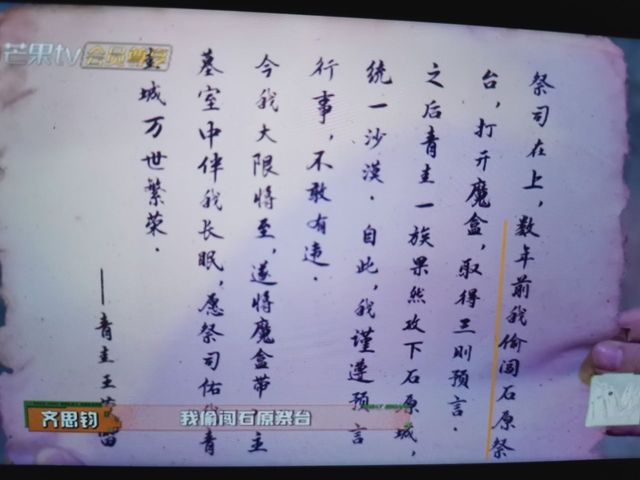 芒果tv 会员尊享
祭司在上，数年前我偷闯石原祭
台，打开魔盒，取得三则预言．
之后青圭一族果然攻下石原城，
统一沙漠．自此，我谨遵预言
行事，不敢有违．
今我大限将至，遂将魔盒带 主
墓室中伴我长眠，愿祭司佑 青
圭城万世繁荣．
——青圭王
齐思钧 我偷闯石原祭台